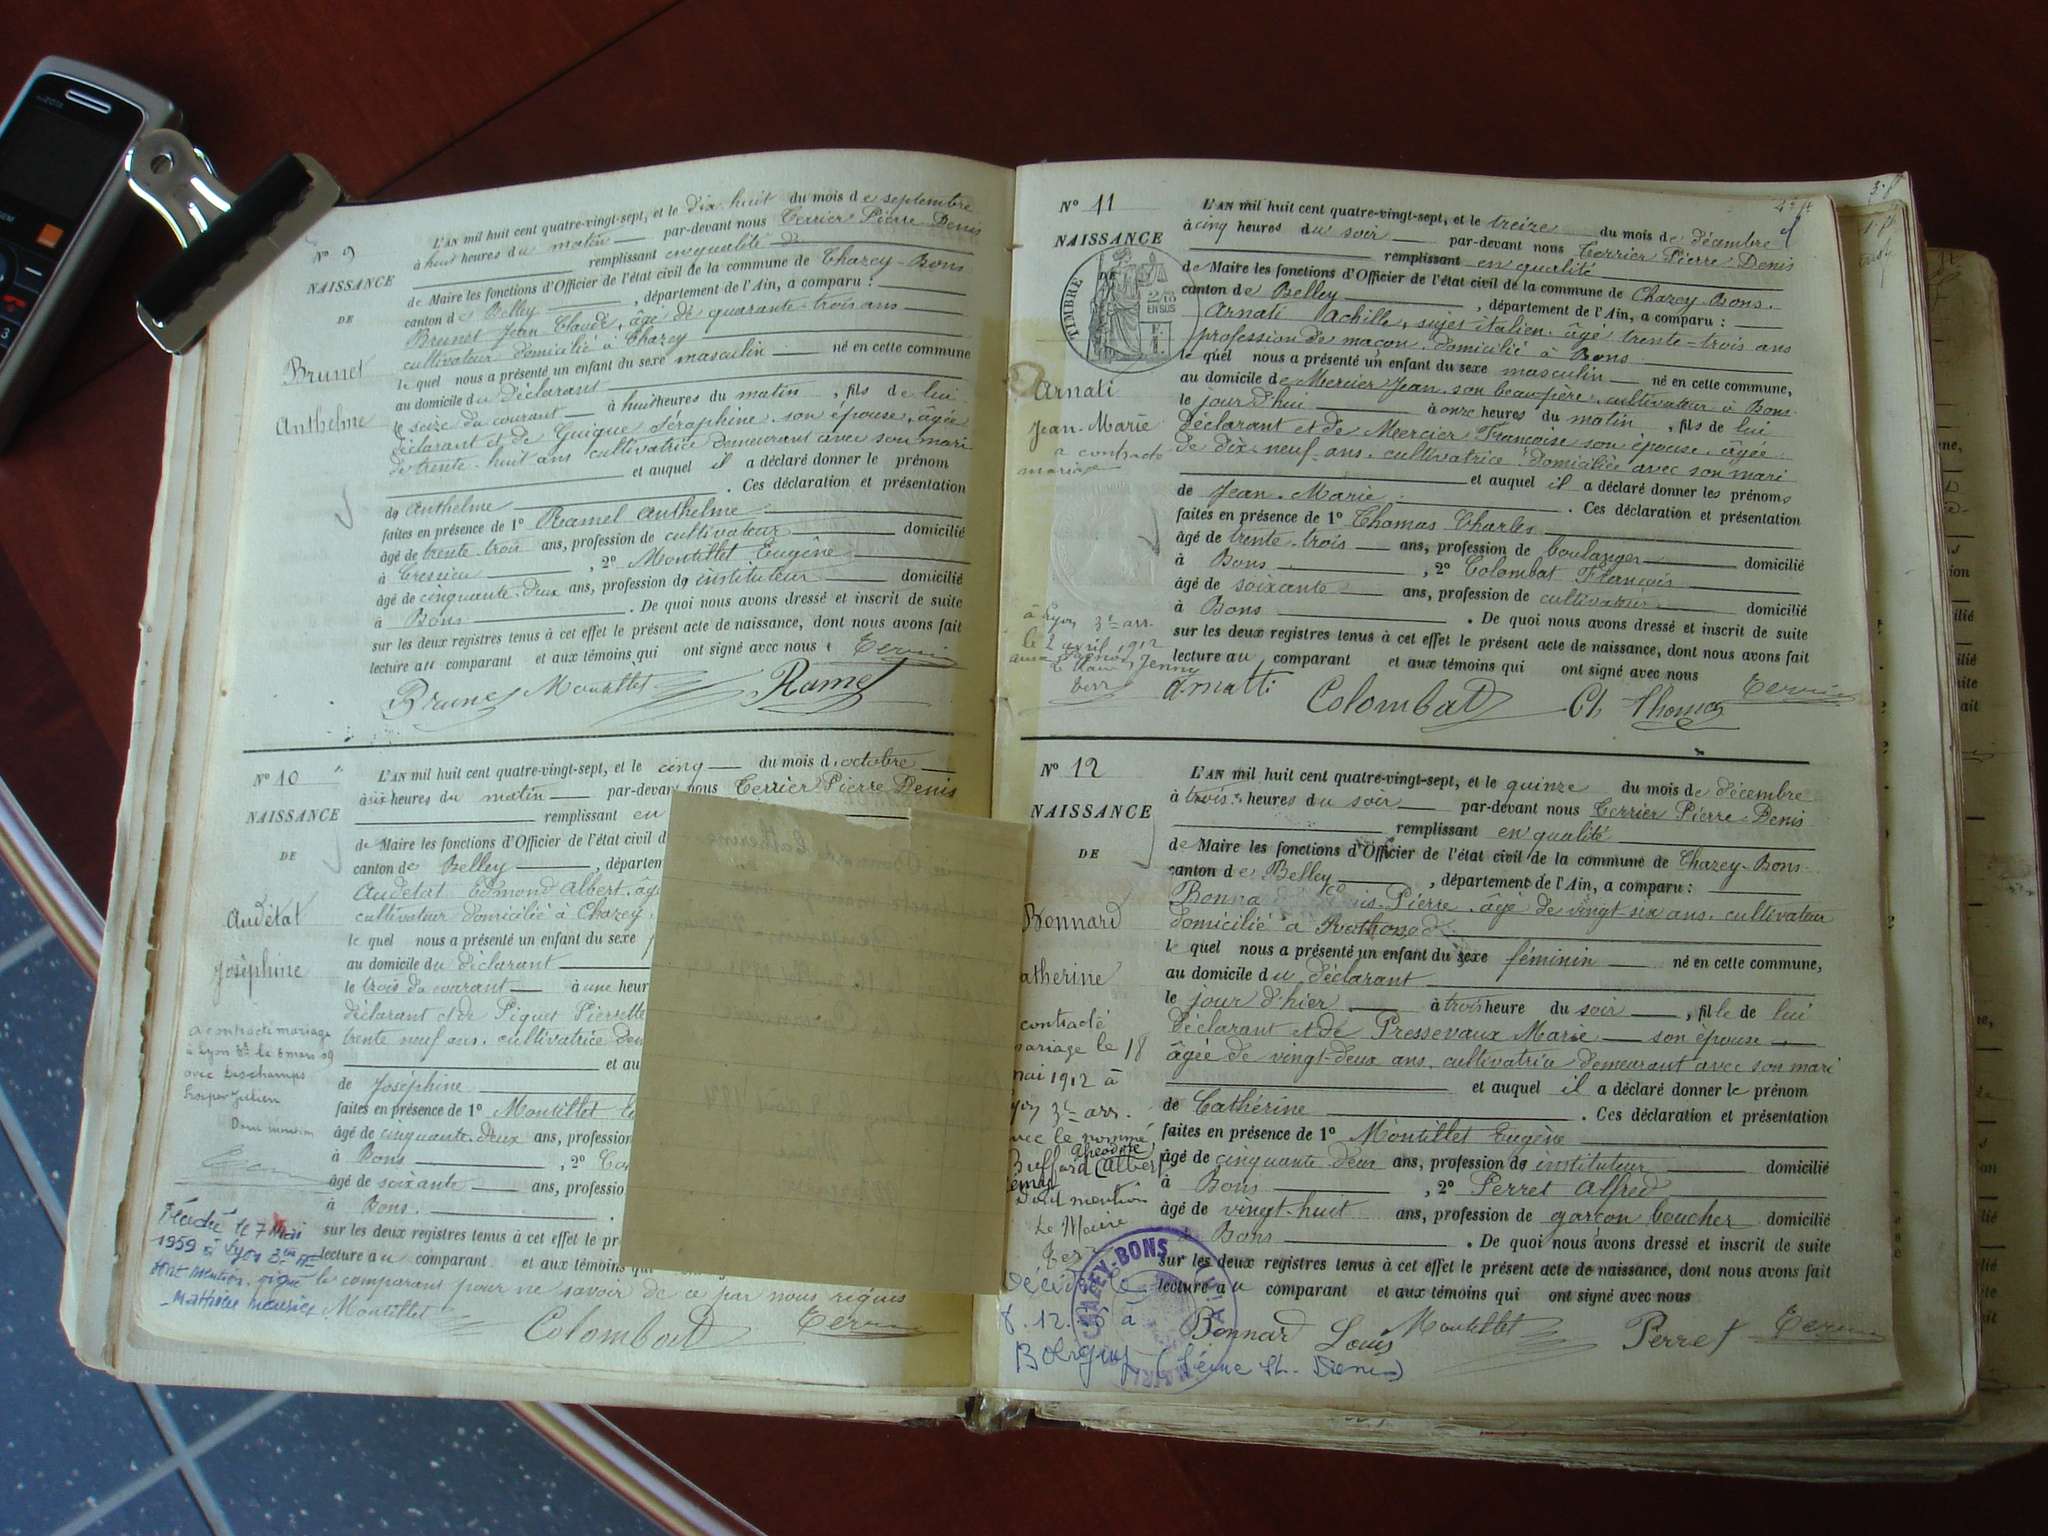 N° 9
NAISSANCE
DE
Brunet
Anthelme
L'AN mil huit cent quatre-vingt-sept, et le dix huit du mois de septembre
à huit heures du matin par-devant nous Terrier Pierre Denis
remplissant en qualité de
de Maire les fonctions d'Officier de l'état civil de la commune de Chazey-Bons
canton de Belley , département de l'Ain, a comparu :
Brunet Jean Claude, âgé de quarante-trois ans
cultivateur domicilié à Chazey
le quel nous a présenté un enfant du sexe masculin né en cette commune
au domicile du déclarant
le seize du courant à huit heures du matin , fils de lui
déclarant et de Guigue Séraphine, son épouse, âgée
de trente-huit ans cultivatrice demeurant avec son mari
et auquel il a déclaré donner le prénom
de Anthelme . Ces déclaration et présentation
faites en présence de 1° Ramel Anthelme
âgé de trente-trois ans, profession de cultivateur domicilié
à Cressieu , 2° Montillet Eugène
âgé de cinquante-deux ans, profession de instituteur domicilié
à Bons . De quoi nous avons dressé et inscrit de suite
sur les deux registres tenus à cet effet le présent acte de naissance, dont nous avons fait
lecture au comparant et aux témoins qui ont signé avec nous
Brunet Montillet Ramel
N° 10
NAISSANCE
DE
Audétat
Joséphine
a contracté mariage
à Lyon 6e le 6 mars 09
avec Deschamps
Prosper Julien
Dont mention
L'AN mil huit cent quatre-vingt-sept, et le cinq du mois d'octobre
à six heures du matin par-devant nous Terrier Pierre Denis
remplissant en
de Maire les fonctions d'Officier de l'état civil d
canton de Belley , départem
Audétat Edmond Albert, âg
cultivateur domicilié à Chazey
le quel nous a présenté un enfant du sexe
au domicile du déclarant
le trois du courant à une heur
déclarant et de Piguet Pierrette
trente neuf ans, cultivatrice dem
et au
de Joséphine
faites en présence de 1° Montillet E
âgé de cinquante-deux ans, profession
à Bons , 2° Co
âgé de soixante ans, professio
à Bons
sur les deux registres tenus à cet effet le pr
lecture au comparant et aux témoins qui
le comparant pour ne savoir de ce par nous requis
1959 à Lyon 3me Ar
Dont mention
Montillet Colombat
N° 11
NAISSANCE
DE
TIMBRE
2/10
EN SUS
Arnati
Jean-Marie
a contracté
mariage
à Lyon 3e arr.
le 2 avril 1912
Jenny
L'AN mil huit cent quatre-vingt-sept, et le treize du mois de décembre
à cinq heures du soir par-devant nous Terrier Pierre Denis
remplissant en qualité
de Maire les fonctions d'Officier de l'état civil de la commune de Chazey-Bons.
canton de Belley , département de l'Ain, a comparu :
Arnati Achille, sujet italien, âgé trente-trois ans
profession de maçon, domicilié à Bons
le quel nous a présenté un enfant du sexe masculin né en cette commune,
au domicile de Mercier Jean, son beau-père, cultivateur à Bons
le jour d'hui à onze heures du matin , fils de lui
déclarant et de Mercier Françoise son épouse, âgée
de dix-neuf ans, cultivatrice domiciliée avec son mari
et auquel il a déclaré donner les prénoms
de Jean-Marie . Ces déclaration et présentation
faites en présence de 1° Thomas Charles
âgé de trente-trois ans, profession de boulanger domicilié
à Bons , 2° Colombat François
âgé de soixante ans, profession de cultivateur domicilié
à Bons . De quoi nous avons dressé et inscrit de suite
sur les deux registres tenus à cet effet le présent acte de naissance, dont nous avons fait
lecture au comparant et aux témoins qui ont signé avec nous
Arnatti Colombat Ch Thomas
N° 12
NAISSANCE
DE
Bonnard
atherine
contracté
mariage le 18
mai 1912 à
yon 3e arr.
vec le nommé
Théodore
Buffard Albert
Rémy
Dont mention
Le Maire
L'AN mil huit cent quatre-vingt-sept, et le quinze du mois de décembre
à trois heures du soir par-devant nous Terrier Pierre Denis
remplissant en qualité
de Maire les fonctions d'Officier de l'état civil de la commune de Chazey-Bons
canton de Belley , département de l'Ain, a comparu :
Bonna Pierre, âgé de vingt-six ans, cultivateur
domicilié à Rothonod
le quel nous a présenté un enfant du sexe féminin né en cette commune,
au domicile du déclarant
le jour d'hier à trois heure du soir , fille de lui
déclarant et de Pressevaux Marie son épouse
âgée de vingt-deux ans, cultivatrice demeurant avec son mari
et auquel il a déclaré donner le prénom
de Cathérine . Ces déclaration et présentation
faites en présence de 1° Montillet Eugène
âgé de cinquante deux ans, profession de instituteur domicilié
à Bons , 2° Perret Alfred
âgé de vingt-huit ans, profession de garçon boucher domicilié
à Bons . De quoi nous avons dressé et inscrit de suite
sur les deux registres tenus à cet effet le présent acte de naissance, dont nous avons fait
lecture au comparant et aux témoins qui ont signé avec nous
CHAZEY-BONS
Bonnard Louis Montillet Perret
Bobigny (Seine St. Denis)